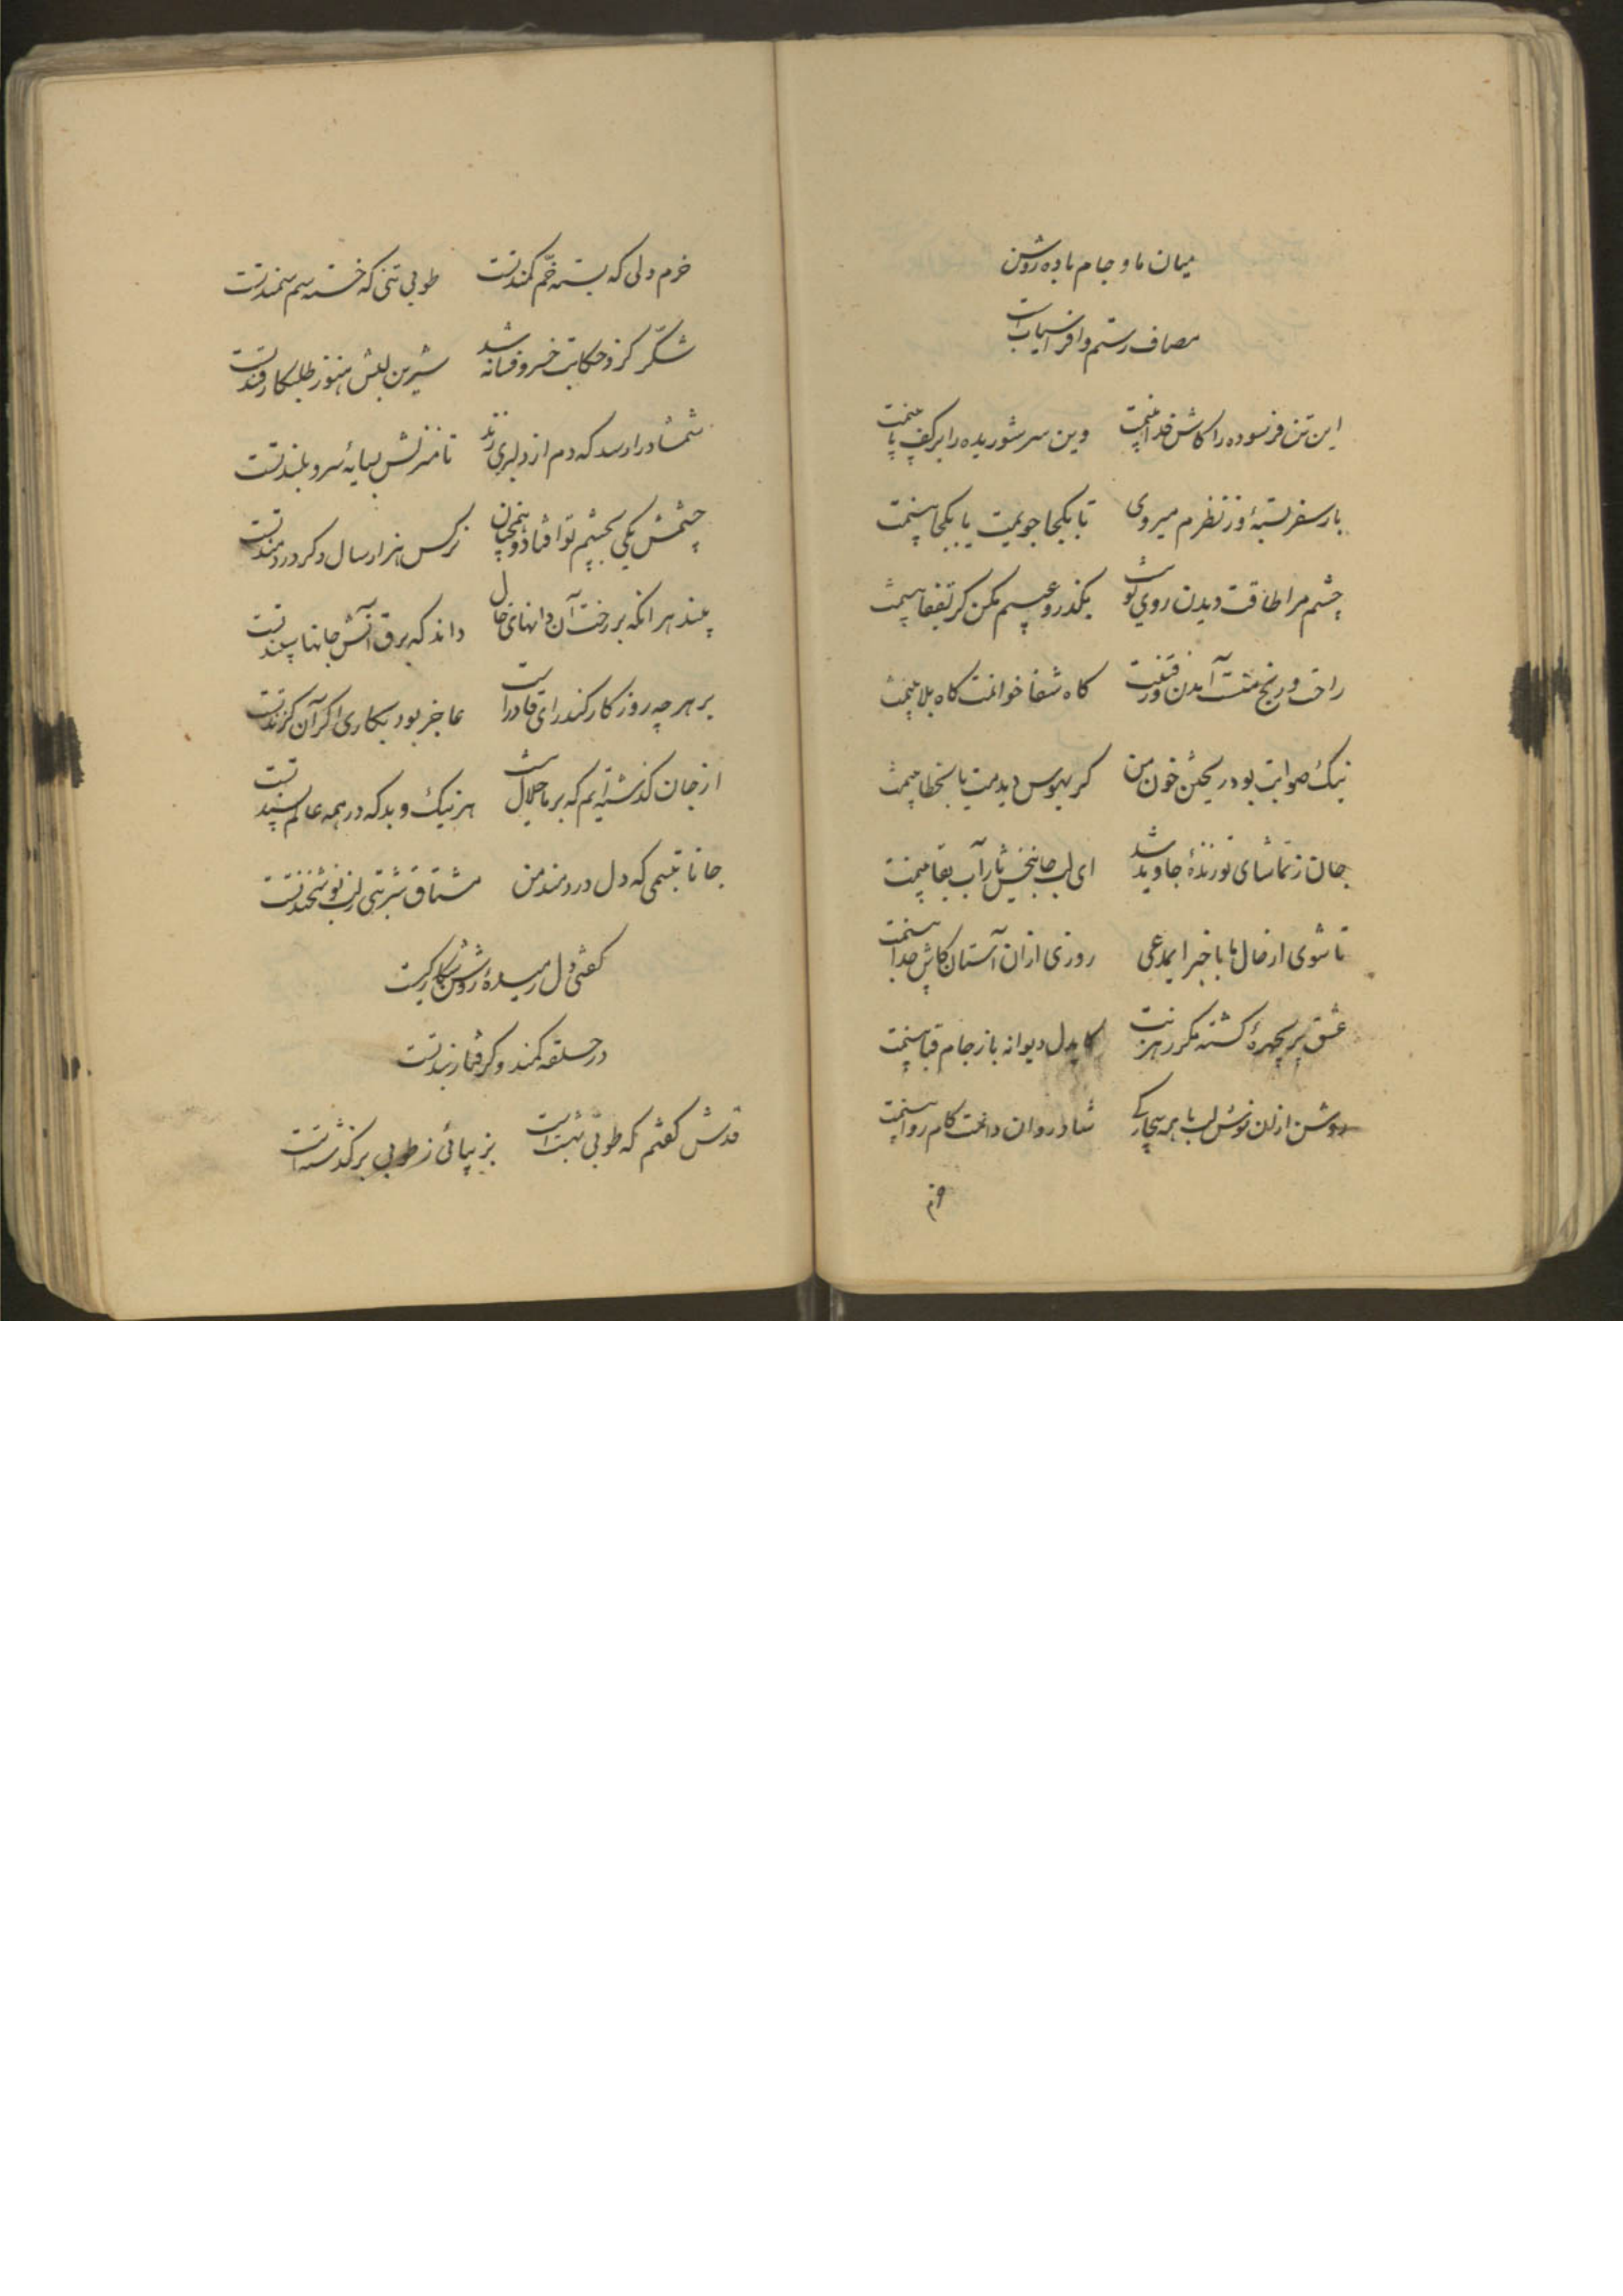 میان ما و جام باده روشن
مصاف رستم و افراسیاب است
این تن فرسوده را کاش فدا بینمت وین سر شوریده را بر کف پا بینمت
بار سفر بستهٔ وز نظرم میروی تا بکجا جویمت یا بکجا بینمت
چشم مرا طاقت دیدن روی تو نیست بگذر و عیبم مکن گر بقفا بینمت
راحت و رنج منت آمدن و رفتنت گاه شفا خوانمت گاه بلا بینمت
نیک صوابت بود ریختن خون من گر بهوس دیدمت یا بخطا بینمت
جان ز تماشای تو زندهٔ جاوید شد ای لب جانبخش یار آب بقا بینمت
تا شوی از حال ما با خبر ای مدعی روزی ازان آستان کاش جدا بینمت
عشق پریچهرهٔ گشته مگر رهزنت کایدل دیوانه باز جامه قبا بینمت
روشن ازان نوش لب با همه بیچارگی شاد روان دانمت کام روا بینمت
خرم دلی که بسته خمّ کمند تست طوبی تنی که خسته سم سمند تست
شکّر کزو حکایت خسرو فسانه شد شیرین لبش هنوز طلبکار قند تست
شمشاد را رسد که دم از دلبری زند تا منزلش بسایهٔ سرو بلند تست
چشمش یکی بچشم تو افتاد و همچنان نرگس هزار سال دگر دردمند تست
بیند هر انکه بر رخت آن دانهای خال داند که برق آتش جانها سپند تست
بر هر چه روزگار کند رای قادر است عاجز بود بکاری اگر آن گزند تست
از جان گذشته‌ایم که بر ما حلال تست هر نیک و بد که در همه عالم پسند تست
جانا تبسمی که دل دردمند من مشتاق شربتی ز لب نوشخند تست
گفتی دل رمیدهٔ روشن شکار کیست
در حلقه کمند و گرفتار بند تست
قدش گفتم که طوبی بهشت است بزیبائی ز طوبی بر گذشته است